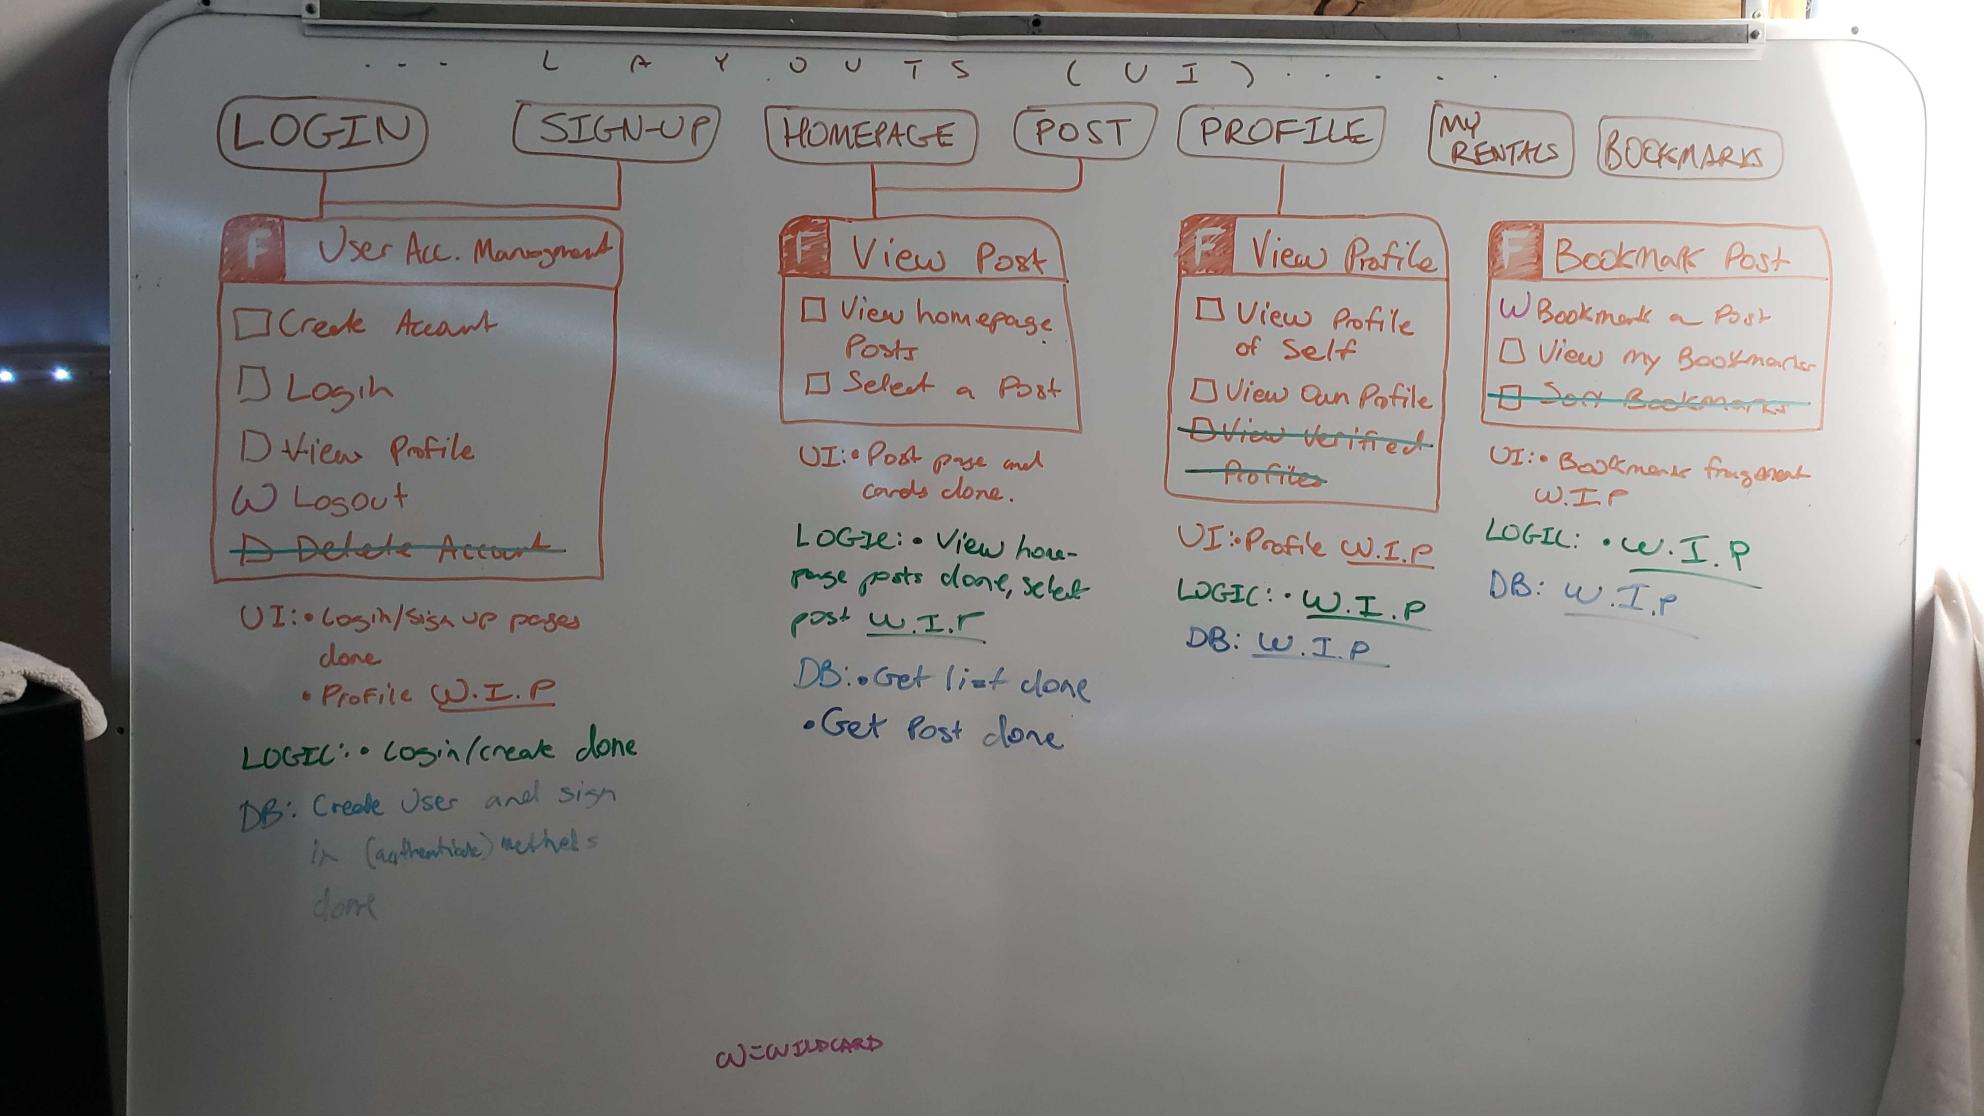 ... LAYOUTS (UI) ......
LOGIN
SIGN-UP
HOMEPAGE
POST
PROFILE
MY
RENTALS
BOOKMARKS
F User Acc. Managment
Create Account
Login
View Profile
W Logout
Delete Account
UI: • Login/sign up pages
done
• Profile W.I.P
LOGIC: • Login/create done
DB: Create User and sign
in (authenticate) methods
done
F View Post
View homepage
Posts
Select a Post
UI: • Post page and
cards done.
LOGIC: • View home-
page posts done, select
post W.I.P
DB: • Get list done
• Get Post done
F View Profile
View Profile
of Self
View Own Profile
View Verified
Profiles
UI: • Profile W.I.P
LOGIC: • W.I.P
DB: W.I.P
F Bookmark Post
W Bookmark a Post
View my Bookmarks
Sort Bookmarks
UI: • Bookmarks fragment
W.I.P
LOGIC: • W.I.P
DB: W.I.P
W=WILDCARD